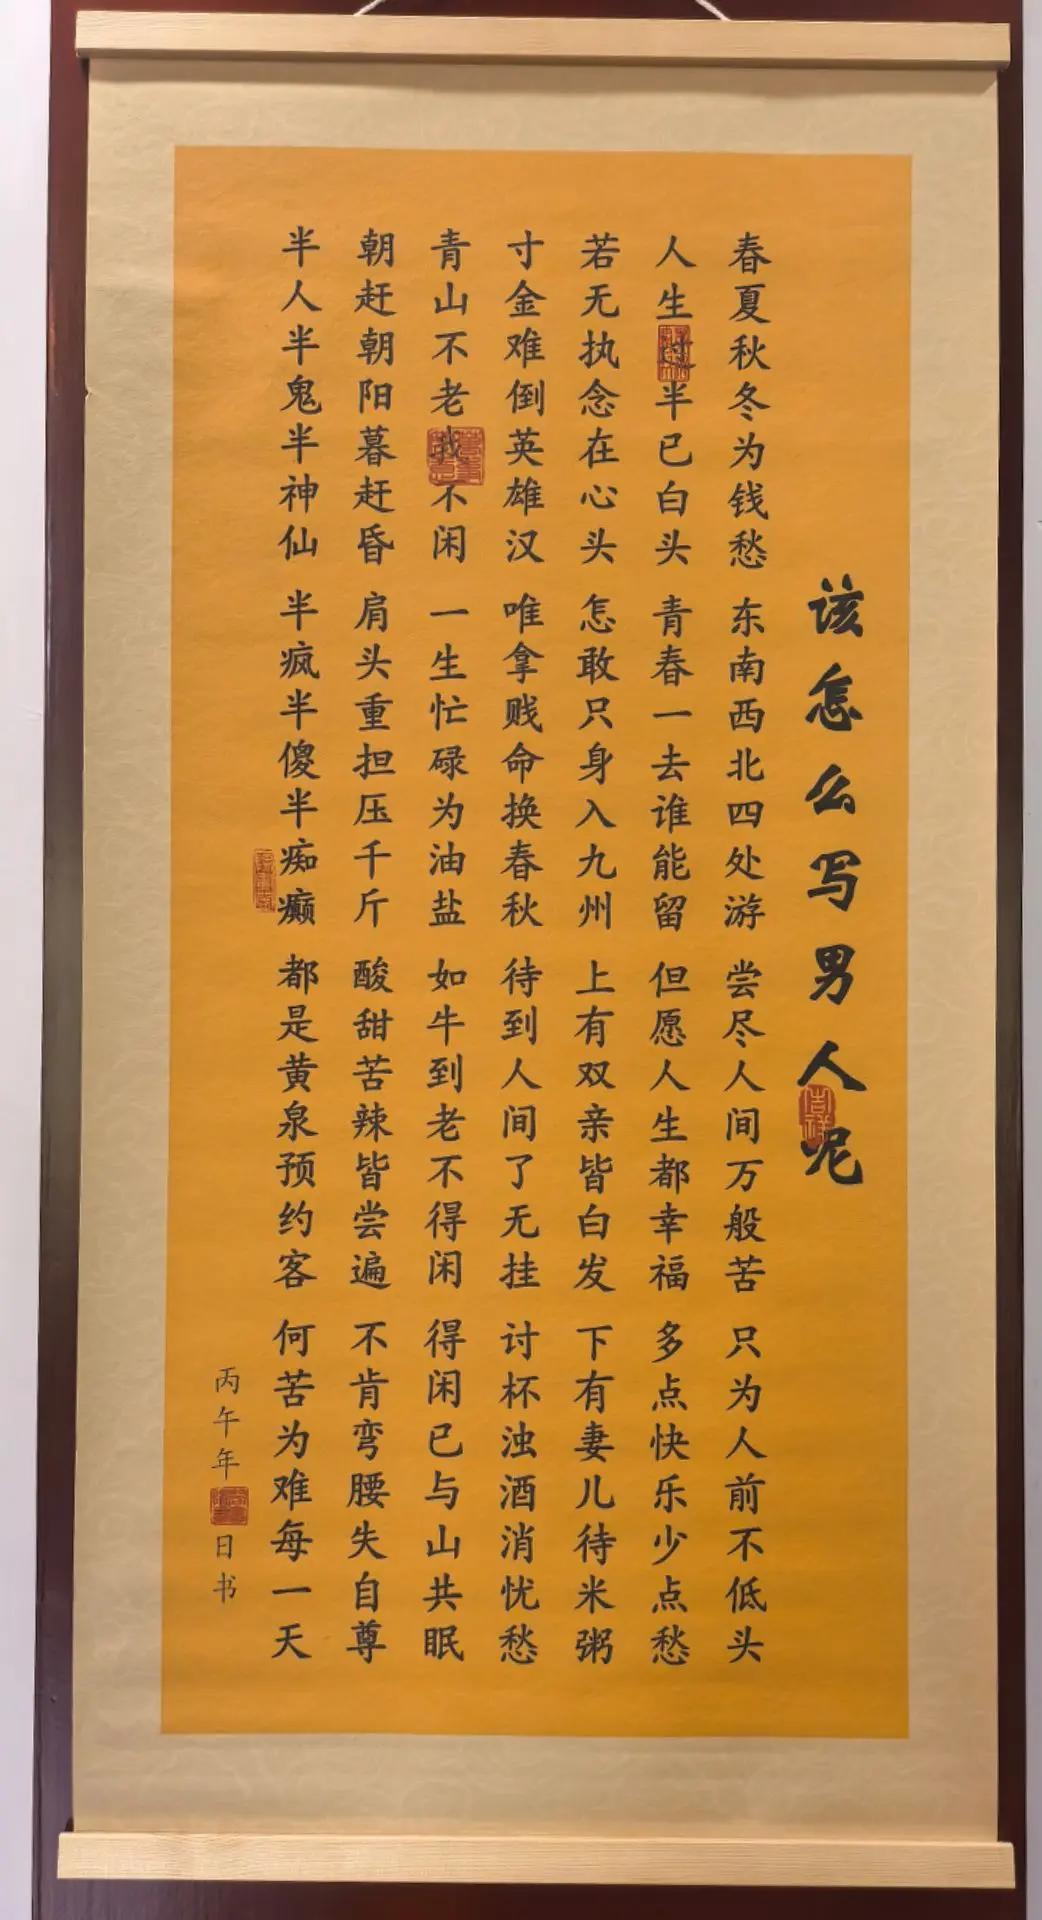 该怎么写男人呢
春夏秋冬为钱愁 东南西北四处游 尝尽人间万般苦 只为人前不低头
人生过半已白头 青春一去谁能留 但愿人生都幸福 多点快乐少点愁
若无执念在心头 怎敢只身入九州 上有双亲皆白发 下有妻儿待米粥
寸金难倒英雄汉 唯拿贱命换春秋 待到人间了无挂 讨杯浊酒消忧愁
青山不老我不闲 一生忙碌为油盐 如牛到老不得闲 得闲已与山共眠
朝赶朝阳暮赶昏 肩头重担压千斤 酸甜苦辣皆尝遍 不肯弯腰失自尊
半人半鬼半神仙 半疯半傻半痴癫 都是黄泉预约客 何苦为难每一天
丙午年 日书